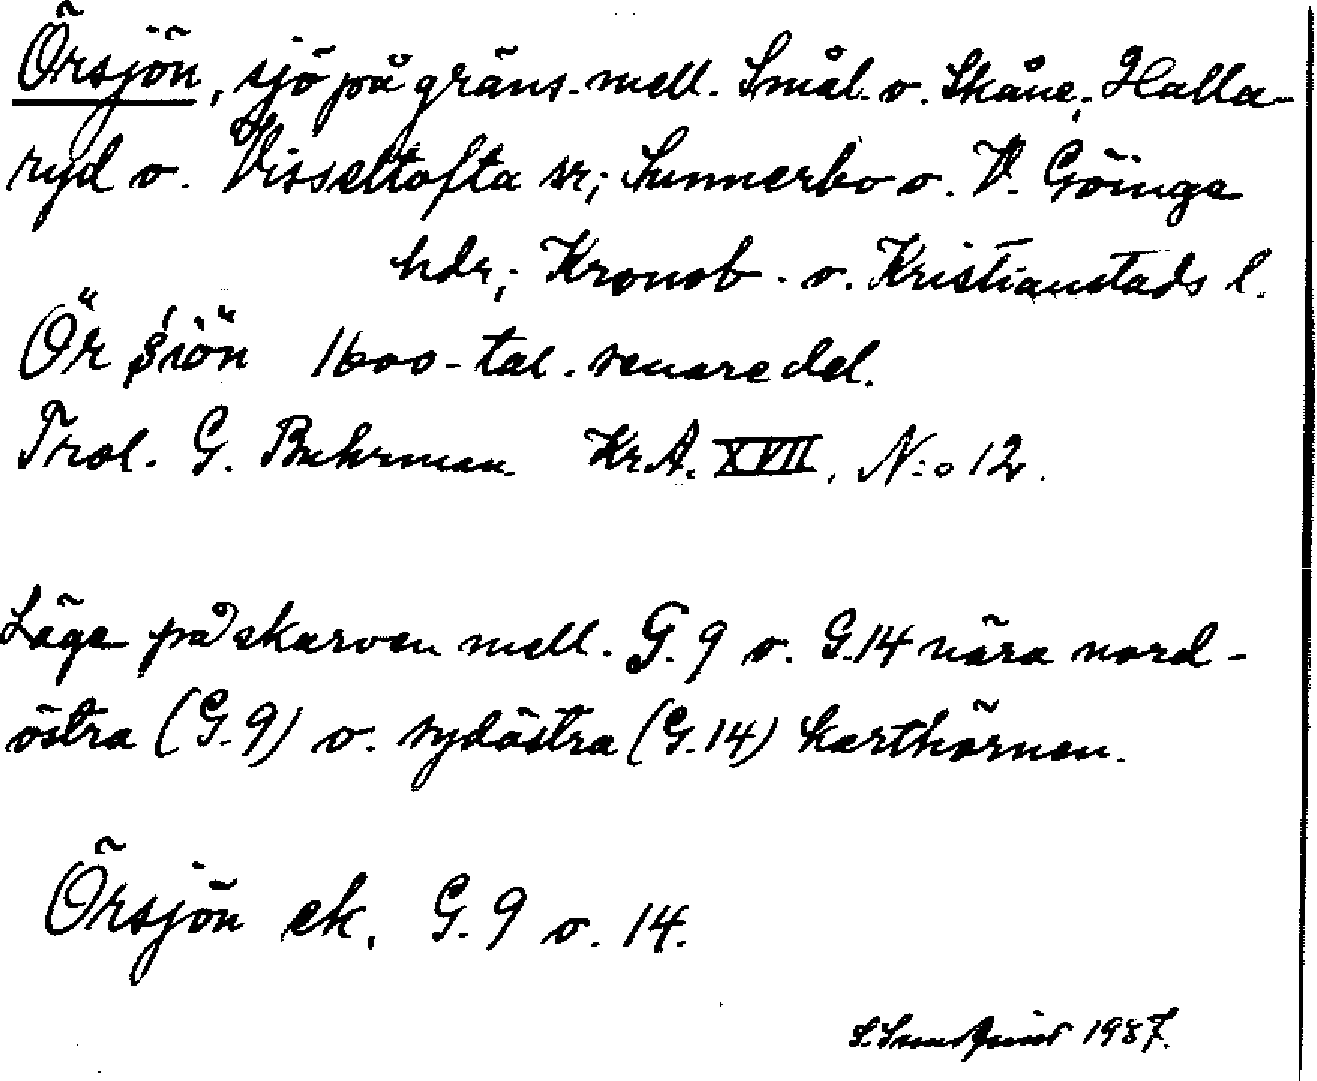 Örsjön, sjö på gräns. mell. Smål. o. Skåne; Halla-
ryd o. Visseltofta sr; Sunnerbo o. V. Göinge
hdr; Kronob. o. Kristianstads l.
Ör siön 1600-tal. senare del.
Trol. G. Buhrman KrA. XVII, N:o 12.
Läge på skarven mell. G. 9 o. G.14 nära nord-
östra (G.9) o. sydöstra (G.14) karthörnen.
Örsjön ek. G. 9 o. 14.
1987.